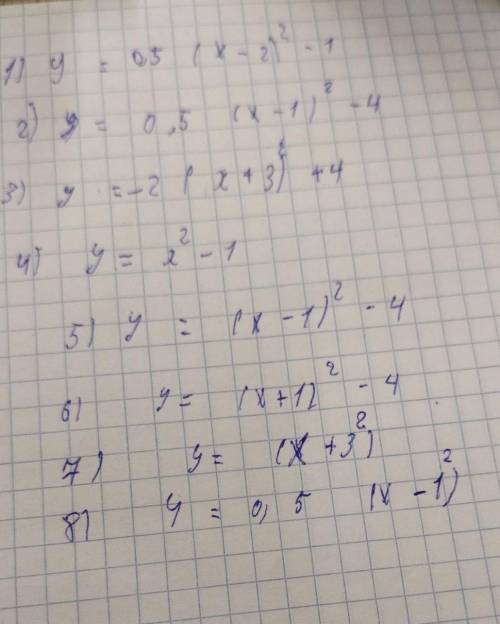 1) y = 0,5 (x - 2)² - 1
2) y = 0,5 (x - 1)² - 4
3) y = -2 (x + 3)² + 4
4) y = x² - 1
5) y = (x - 1)² - 4
6) y = (x + 1)² - 4
7) y = (x + 3)²
8) y = 0,5 (x - 1)²